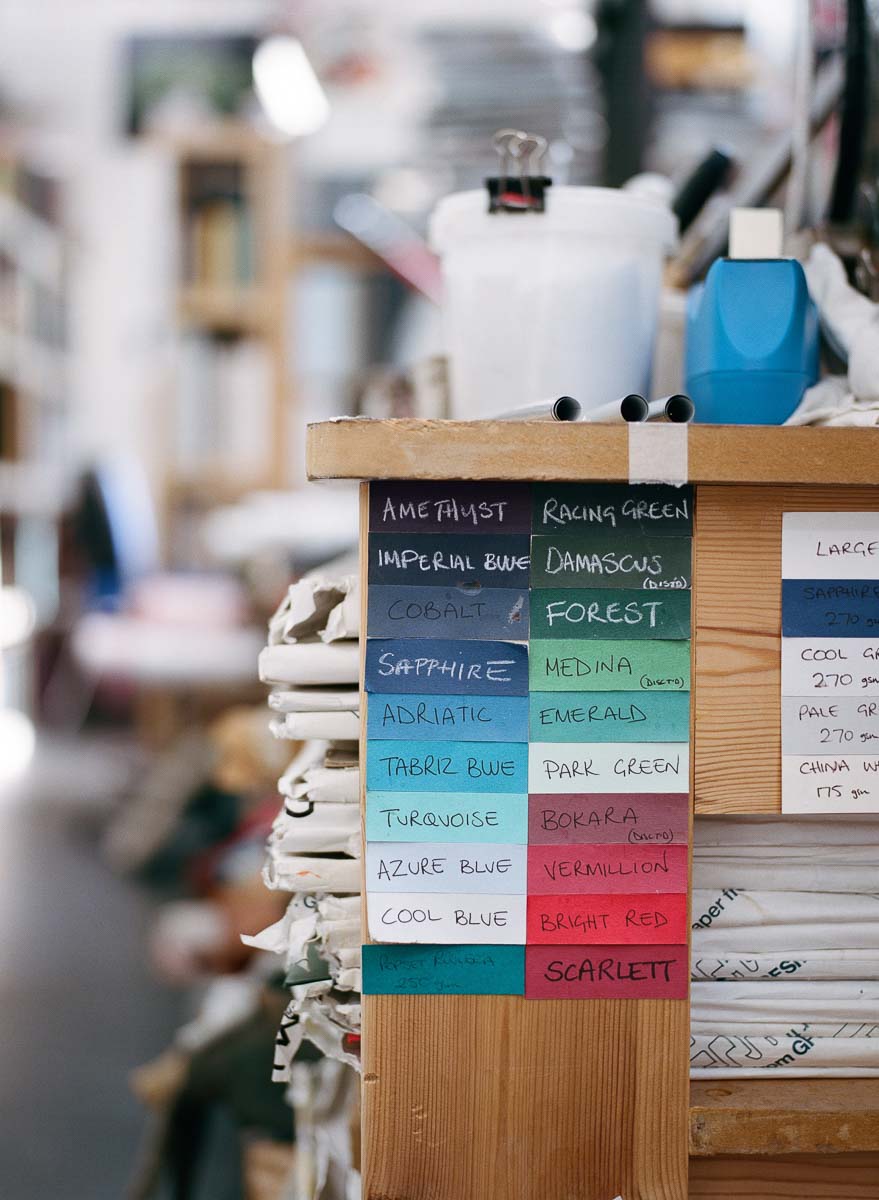 AMETHYST
RACING GREEN
IMPERIAL BLUE
DAMASCUS
(DISC'D)
COBALT
FOREST
SAPPHIRE
MEDINA
(DISCT'D)
ADRIATIC
EMERALD
TABRIZ BLUE
PARK GREEN
TURQUOISE
BOKARA
(DISCT'D)
AZURE BLUE
VERMILLION
COOL BLUE
BRIGHT RED
POPSET
250 gsm
SCARLETT
LARGE
SAPPHIRE
270 gsm
COOL GR
270 gsm
PALE GR
270 gsm
CHINA W
175 gsm
aper fr
om G